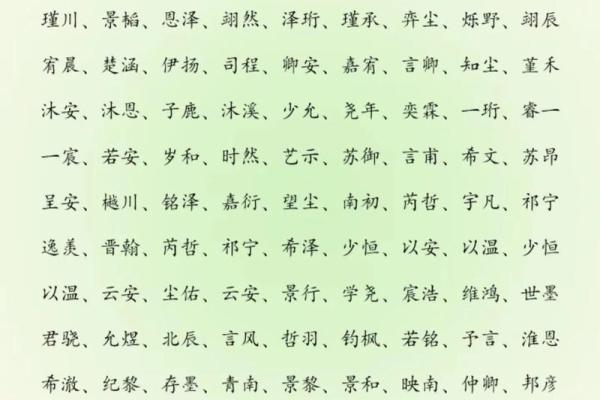 瑾川、景韬、恩泽、翊然、泽珩、瑾承、弈尘、烁野、翊辰
宥晨、楚涵、伊扬、司程、卿安、嘉宥、言卿、知尘、堇禾
沐安、沐恩、子鹿、沐溪、少允、尧年、奕霖、一珩、睿一
一宸、若安、岁和、时然、艺示、苏御、言甫、希文、苏昂
呈安、樾川、铭泽、嘉衍、望尘、南初、芮哲、宇凡、祁宁
逸羡、晋翰、芮哲、祁宁、希泽、少恒、以安、以温、少恒
以温、云安、尘佑、云安、景行、学尧、宸浩、维鸿、世墨
君骁、允煜、北辰、言风、哲羽、钧枫、若铭、予言、淮恩
希澈、纪黎、存墨、青南、景黎、景和、映南、仲卿、邦彦